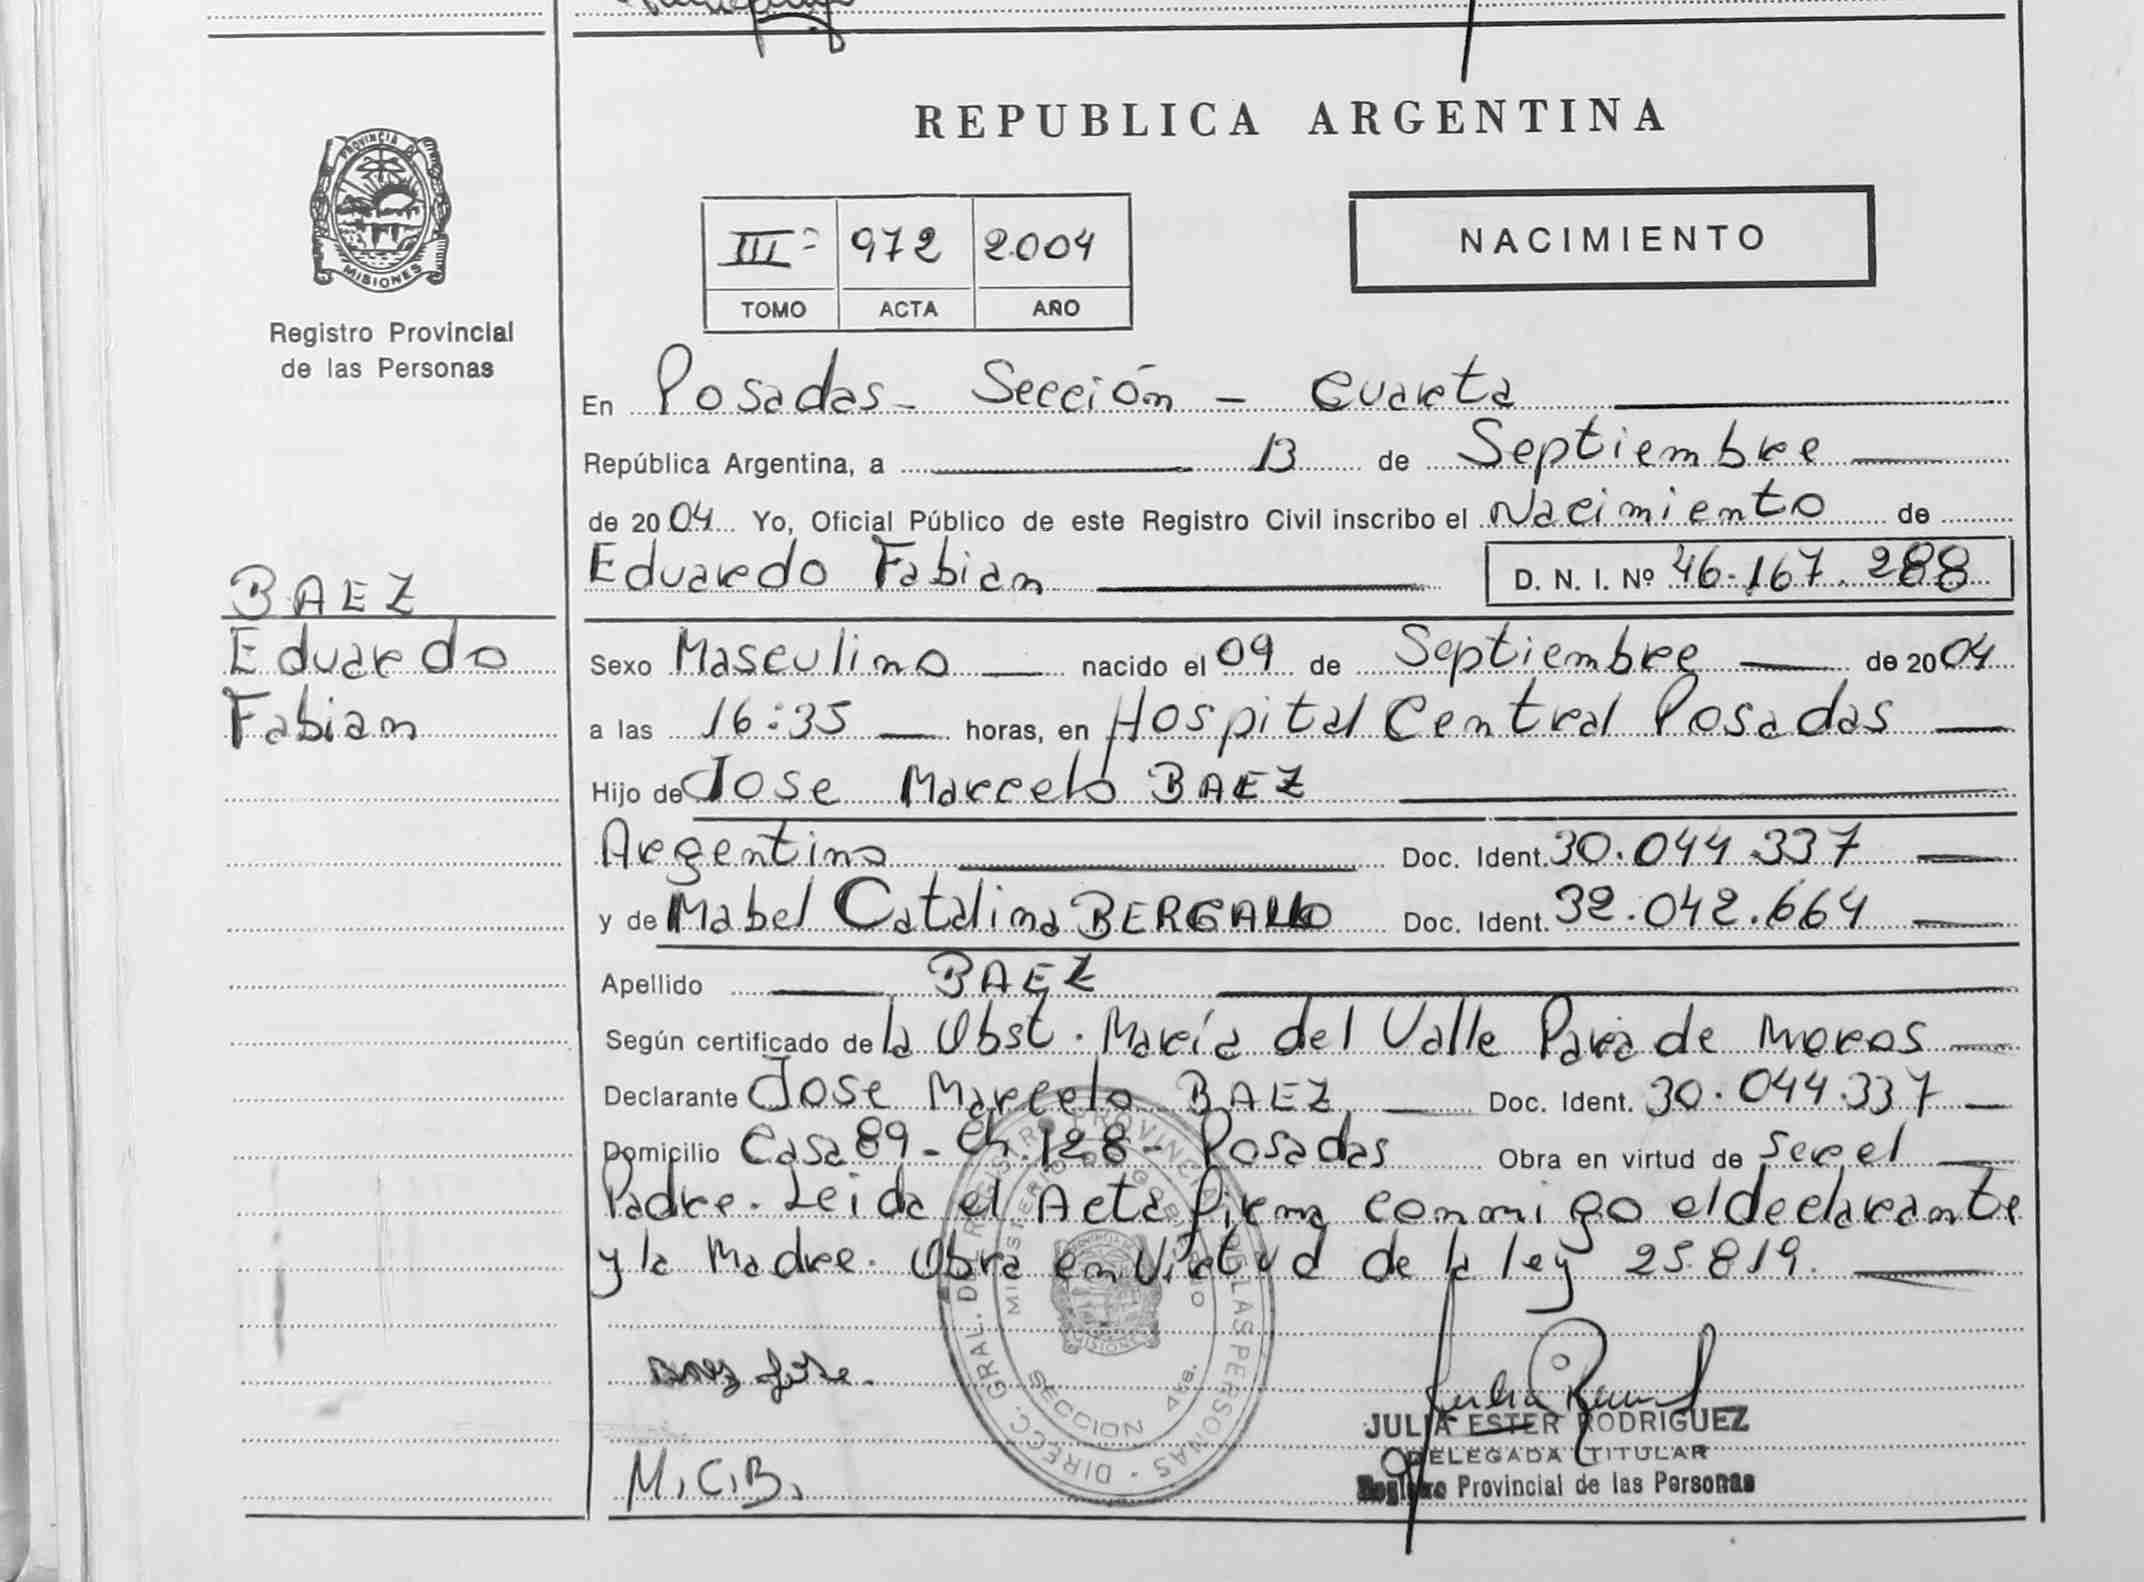 REPUBLICA ARGENTINA
PROVINCIA DE
MISIONES
Registro Provincial
de las Personas
III= 972 2.004
TOMO ACTA AÑO
NACIMIENTO
En Posadas - Sección - Cuarta
República Argentina, a 13 de Septiembre
de 2004 Yo, Oficial Público de este Registro Civil inscribo el Nacimiento de
Eduardo Fabian D. N. I. Nº 46.167.288
BAEZ
Eduardo
Fabian
Sexo Masculino nacido el 09 de Septiembre de 2004
a las 16:35 horas, en Hospital Central Posadas
Hijo de Jose Marcelo BAEZ
Argentino Doc. Ident. 30.044.337
y de Mabel Catalina BERGALLO Doc. Ident. 32.042.664
Apellido BAEZ
Según certificado de la Obst. María del Valle de Moros
Declarante Jose Marcelo BAEZ Doc. Ident. 30.044.337
Domicilio Casa 89 - Ch. 128 - Posadas Obra en virtud de ser el
Padre. Leida el Acta firma conmigo el declarante
y la Madre. Obra en Virtud de la ley 25.819.
DIRECC. GRAL. DE REGISTRO PROVINCIAL DE LAS PERSONAS
MINISTERIO DE GOBIERNO
SECCION 4ta.
Baez Jose.
M.C.B.
JULIA ESTER RODRIGUEZ
DELEGADA TITULAR
Registro Provincial de las Personas